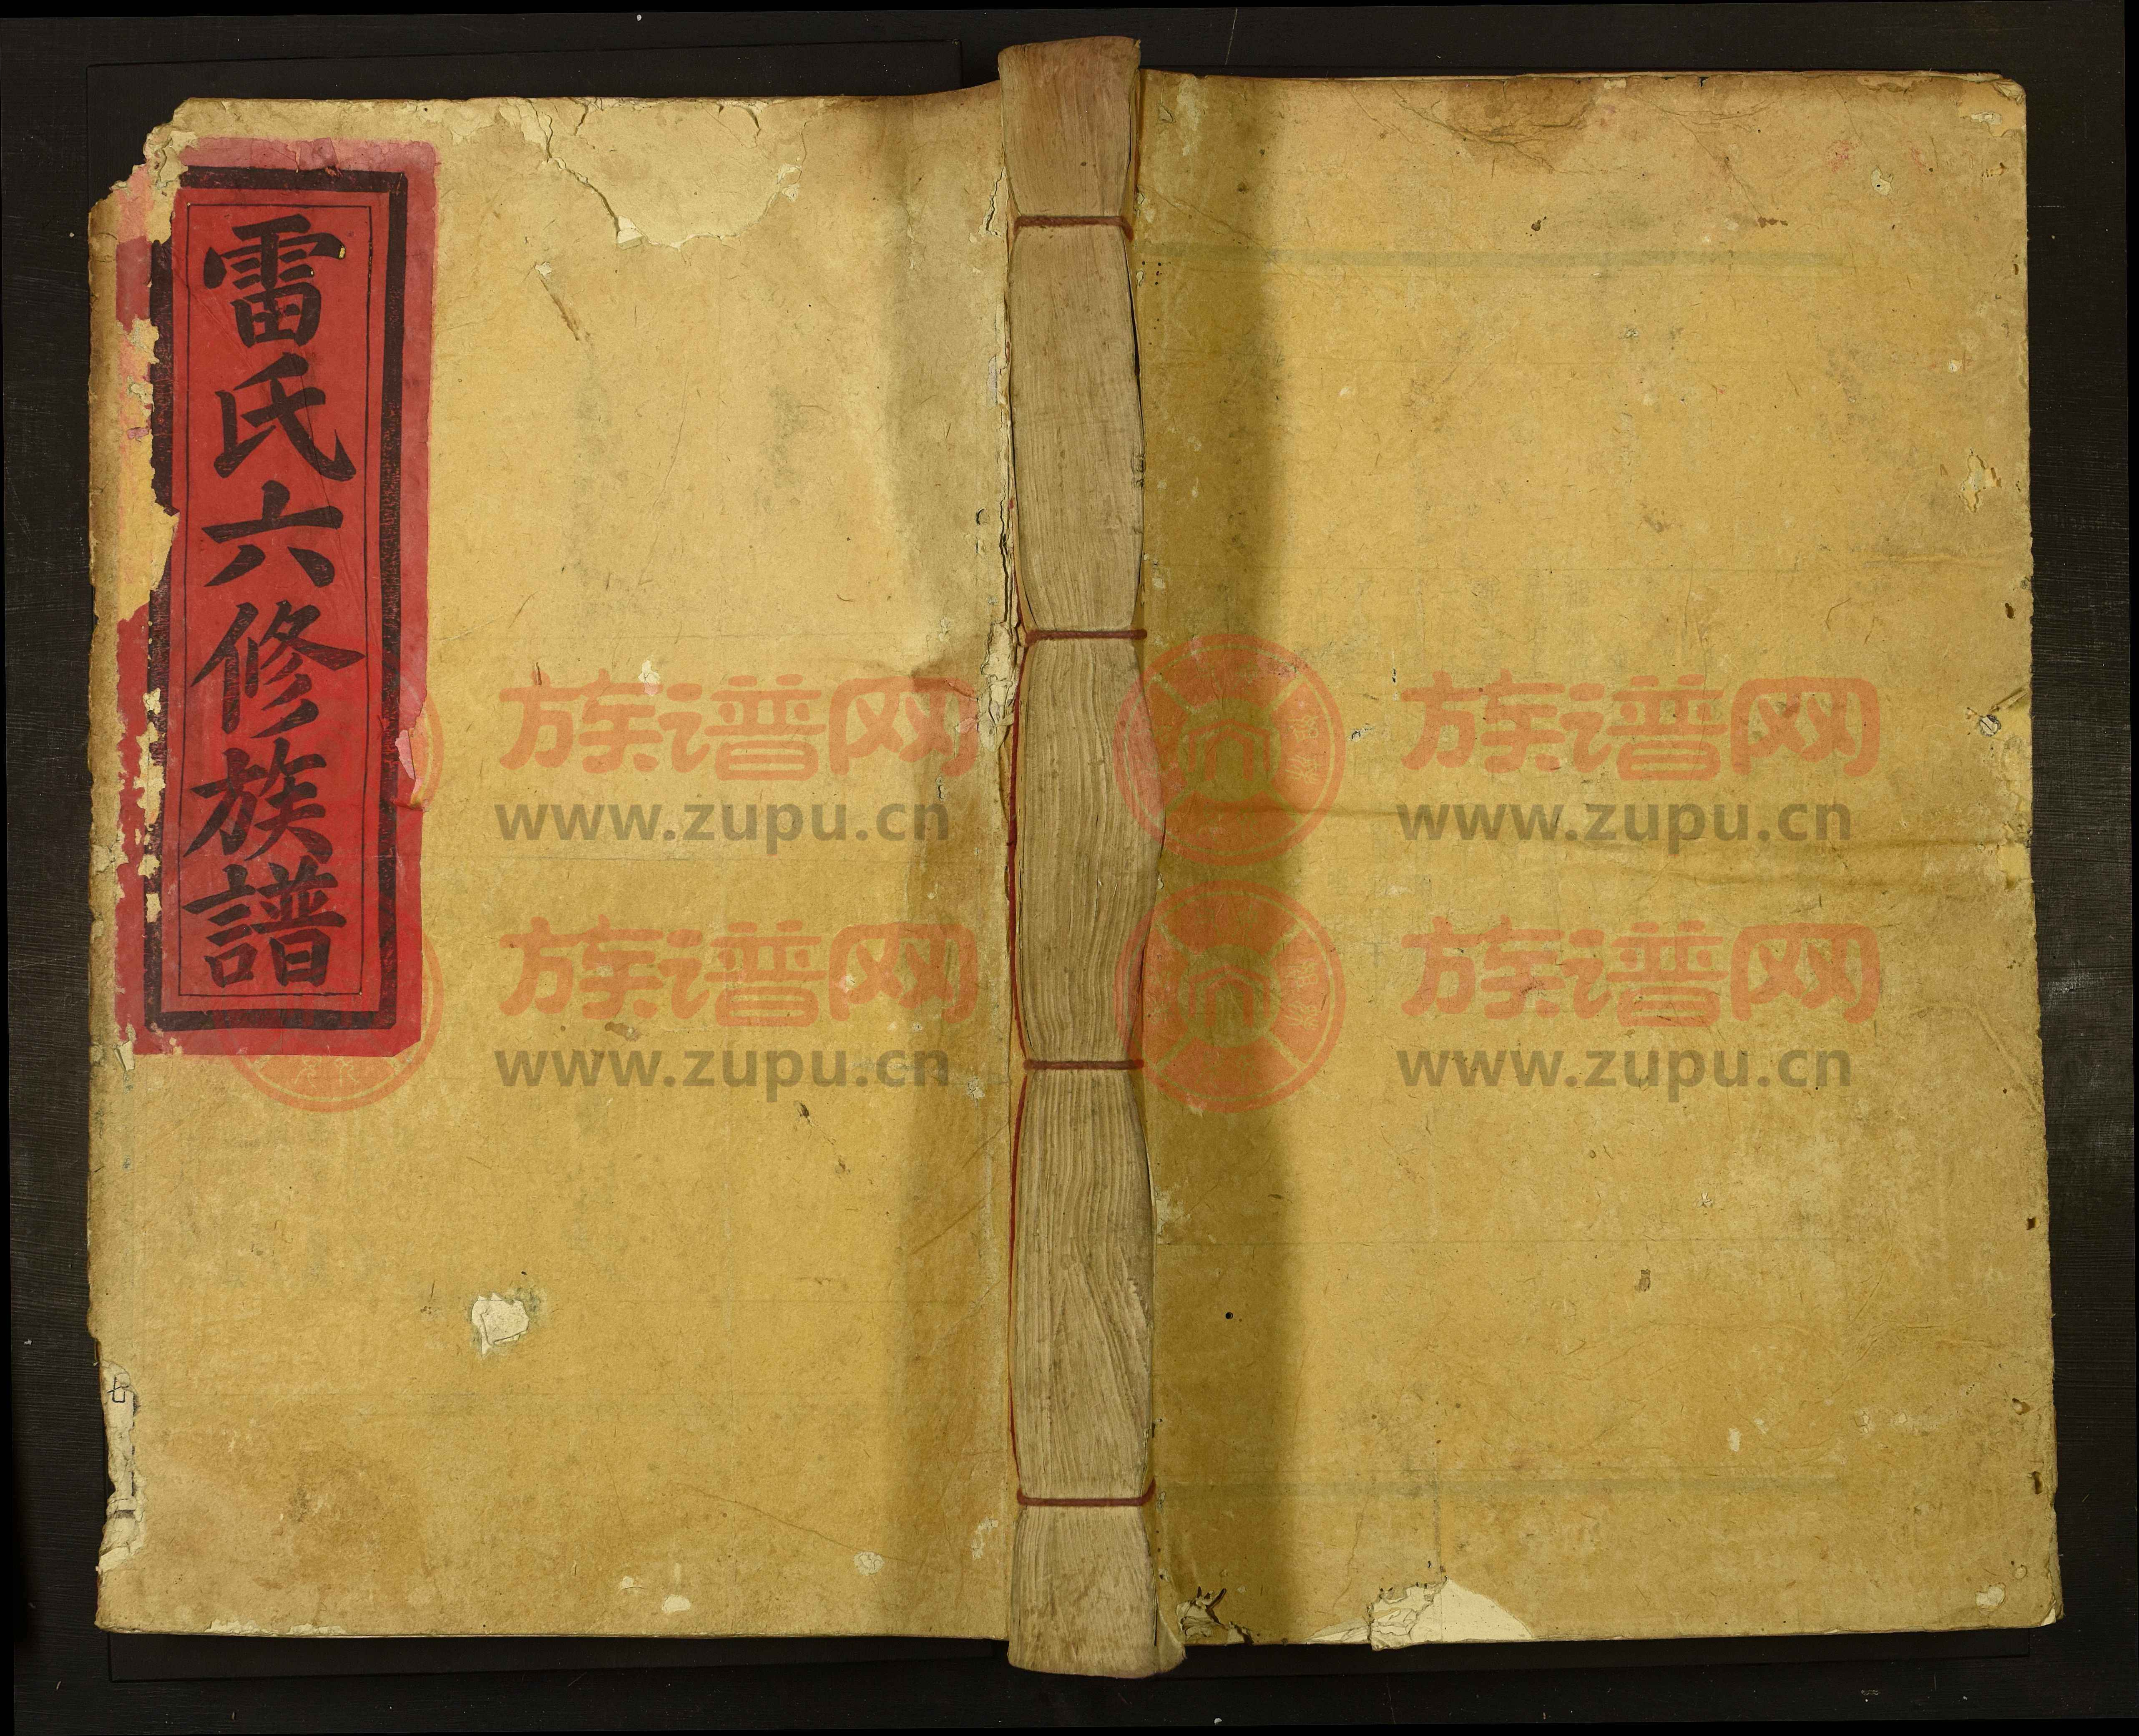 雷氏六修族譜
族谱网
www.zupu.cn
族谱网
www.zupu.cn
族谱网
www.zupu.cn
族谱网
www.zupu.cn